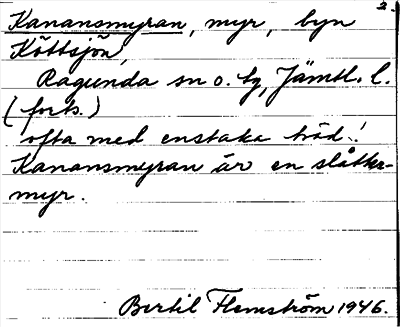 2.
Kanansmyran, myr, byn
Köttsjön,
Ragunda sn o. tg, Jämtl. l.
(forts.)
ofta med enstaka träd.!
Kanansmyran är en slåtter-
myr.
Bertil Flemström 1946.